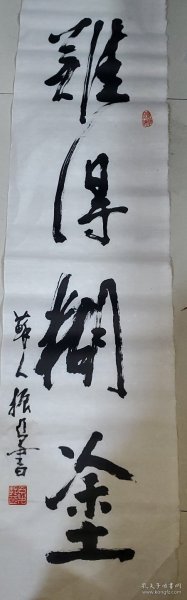 難得糊塗
華人振亞書
孔夫子旧书网